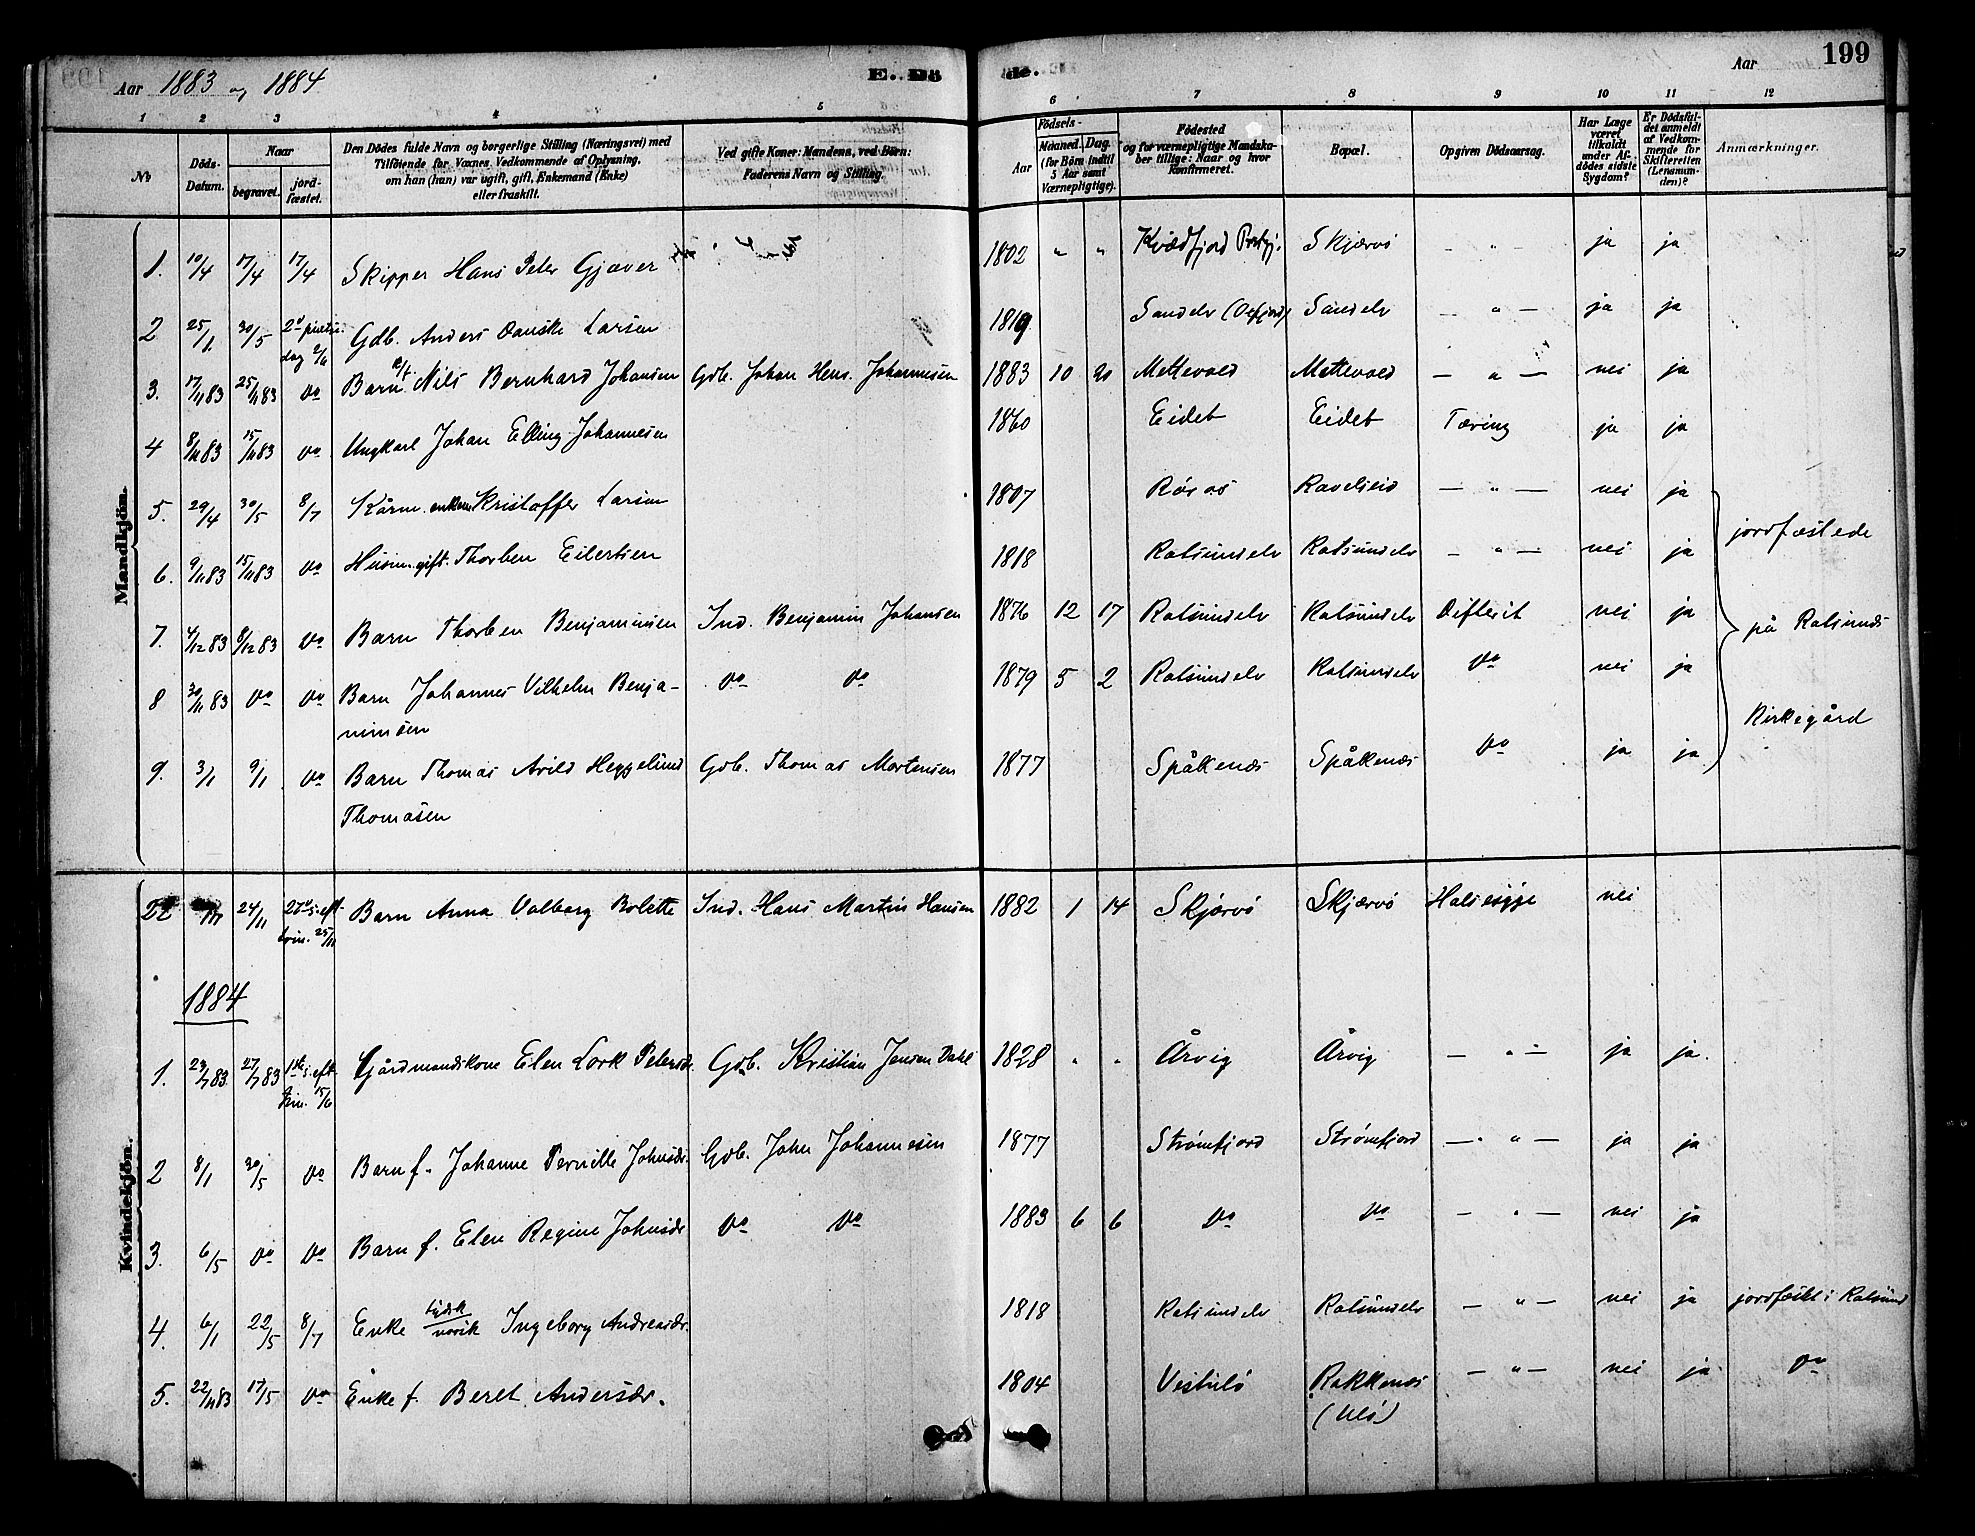 Aar 1883 og 1884 E. Dö de. Aar 199
1 2 3 4 5 6 7 8 9 10 11 12
No
Döds-Datum.
Naar
begravet.
jord-fæstet.
Den Dödes fulde Navn og borgerlige Stilling (Næringsvei) med
Tilföiende for Voxnes Vedkommende af Oplysning,
om han (hun) var ugift, gift, Enkemand (Enke)
eller fraskilt.
Ved gifte Koner: Mandens, ved Börn:
Faderens Navn og Stilling.
Födsels-
Aar
Maaned. Dag.
(for Börn indtil
5 Aar samt
Værnepligtige).
Födested
og for værnepligtige Mandska-
ber tillige: Naar og hvor
konfirmeret.
Bopæl.
Opgiven Dödsaarsag.
Har Læge
været
tilkaldt
under Af-
dödes sidste
Sygdom?
Er Dödsfal-
det anmeldt
af Vedkom-
mende for
Skifteretten
(Lensman-
den)?
Anmærkninger.
Mandkjön.
1. 10/4 17/4 17/4 Skipper Hans Peter Gjæver 1802 " " Kvædfjord Prestgj. Skjærvö — " — ja ja
2 25/1. 30/5 2den pintse-
dag 2/6 Gdb. Anders Danske Larsen 1819 Sandelv Sandelv — " — ja ja
3. 17/11 83 25/11 83 do Barn Nils Bernhard Johansen Gdb. Johan Hens. Johannesen 1883 10 20 Mettevold Mettevold — " — nei ja
4 8/11 83 15/11 83 do Ungkarl Johan Elling Johannesen 1860 Eidet Eidet Tæring ja ja
5. 29/4 30/5 8/7 Kårm. enkem. Kristoffer Larsen 1807 Röros Raveleid — " — nei ja
6. 9/11 83 15/11 83 do Husm. gift. Thorben Eilertsen 1818 Rotsundelv Rotsundelv — " — nei ja jordfæstede
7. 4/12 83 8/12 83 do Barn Thorben Benjaminsen Ind. Benjamin Johansen 1876 12 17 Rotsundelv Rotsundelv Difterit nei ja på Rotsunds
8 30/11 83 do do Barn Johannes Vilhelm Benja-
minsen do do 1879 5 2 Rotsundelv Rotsundelv do nei ja Kirkegård
9. 3/1 9/1 do Barn Thomas Arild Heggelund
Thomasen Gdb. Thomas Mortensen 1877 Spåkenæs Spåkenæs do ja ja
Kvindekjön.
22 24/11 27de s. eft.
trin. 25/11 Barn Anna Valborg Bolette Ind. Hans Martin Hansen 1882 1 14 Skjærvö Skjærvö Halsesyge nei
1884
1. 23/7 83. 27/7 83 1ste s. eft.
Trin. 15/6 Gårdmandskone Elen Lork Petersdr. Gdb. Kristian Jensen Dahl 1828 " " Årvig Årvig — " — ja ja.
2 8/1 30/5 do Barn f. Johanne Pernille Johnsdr. Gdb. John Johannesen 1877 Strömfjord Strömfjord — " — ja ja
3. 6/5 do do Barn f. Elen Regine Johnsdr do do 1883 6 6 do do — " — nei ja
4. 6/1 22/5 8/7 Enke norsk Ingeborg Andreasdr. 1818 Rotsundelv Rotsundelv — " — nei ja jordfæstet i Rotsund
5. 22/11 83 17/5 do Enke f. Beret Andersdr. 1804 Vestulö Rakkenæs
(Ulö) — " — nei ja do